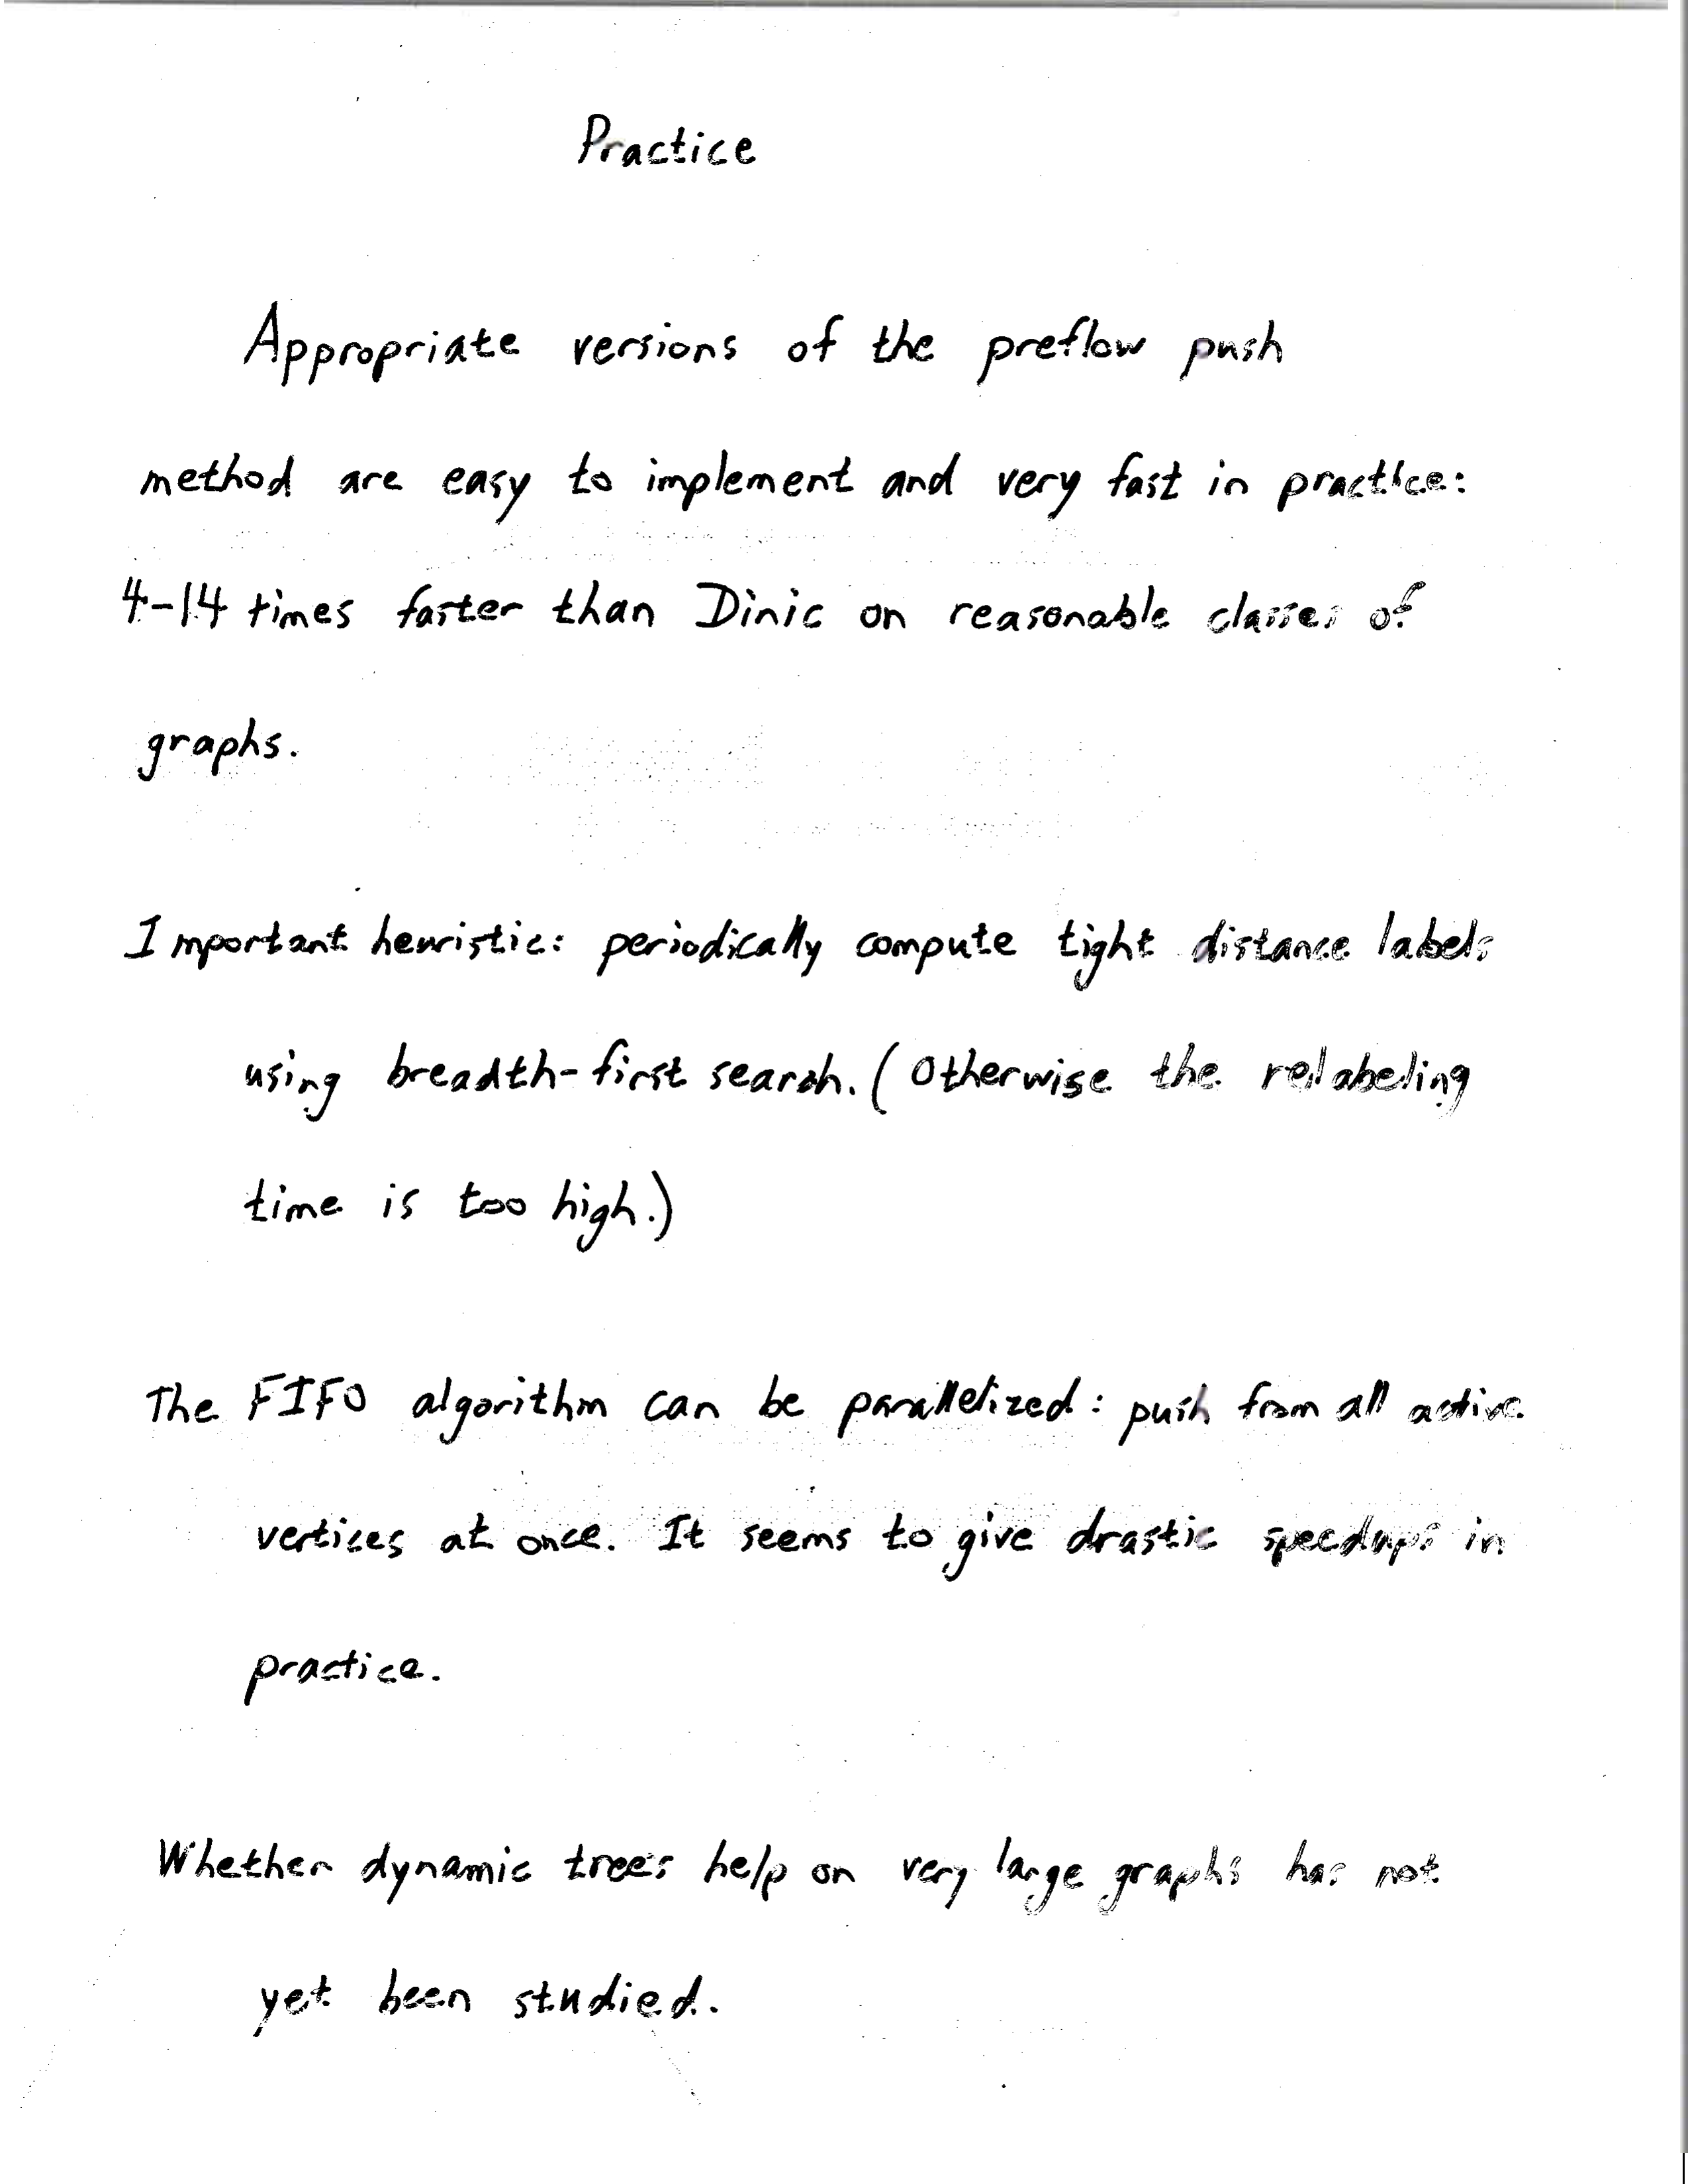 Practice
Appropriate versions of the preflow push
method are easy to implement and very fast in practice:
4-14 times faster than Dinic on reasonable classes of
graphs.
Important heuristic: periodically compute tight distance labels
using breadth-first search. (Otherwise the relabeling
time is too high.)
The FIFO algorithm can be parallelized: push from all active
vertices at once. It seems to give drastic speedups in
practice.
Whether dynamic trees help on very large graphs has not
yet been studied.